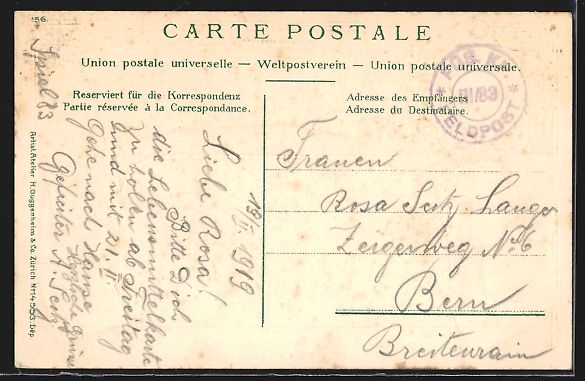 156.
CARTE POSTALE
Union postale universelle — Weltpostverein — Unione postale universale.
Reserviert für die Korrespondenz
Partie réservée à la Correspondance.
Adresse des Empfängers
Adresse du Destinataire.
III/83
FELDPOST
19/II 1919
Liebe Rosa!
Bitte Dich
die Lebensmittelkarte
zu holen ab Freitag
und mit 21. II.
Gehe nach Hause
Herzliche Grüsse
Gefreiter A.
83
Frauen
Rosa Langer
Zeigerweg No 6
Bern
Breitenrain
Artist. Atelier H. Guggenheim & Co., Zürich No 14553. Dép.